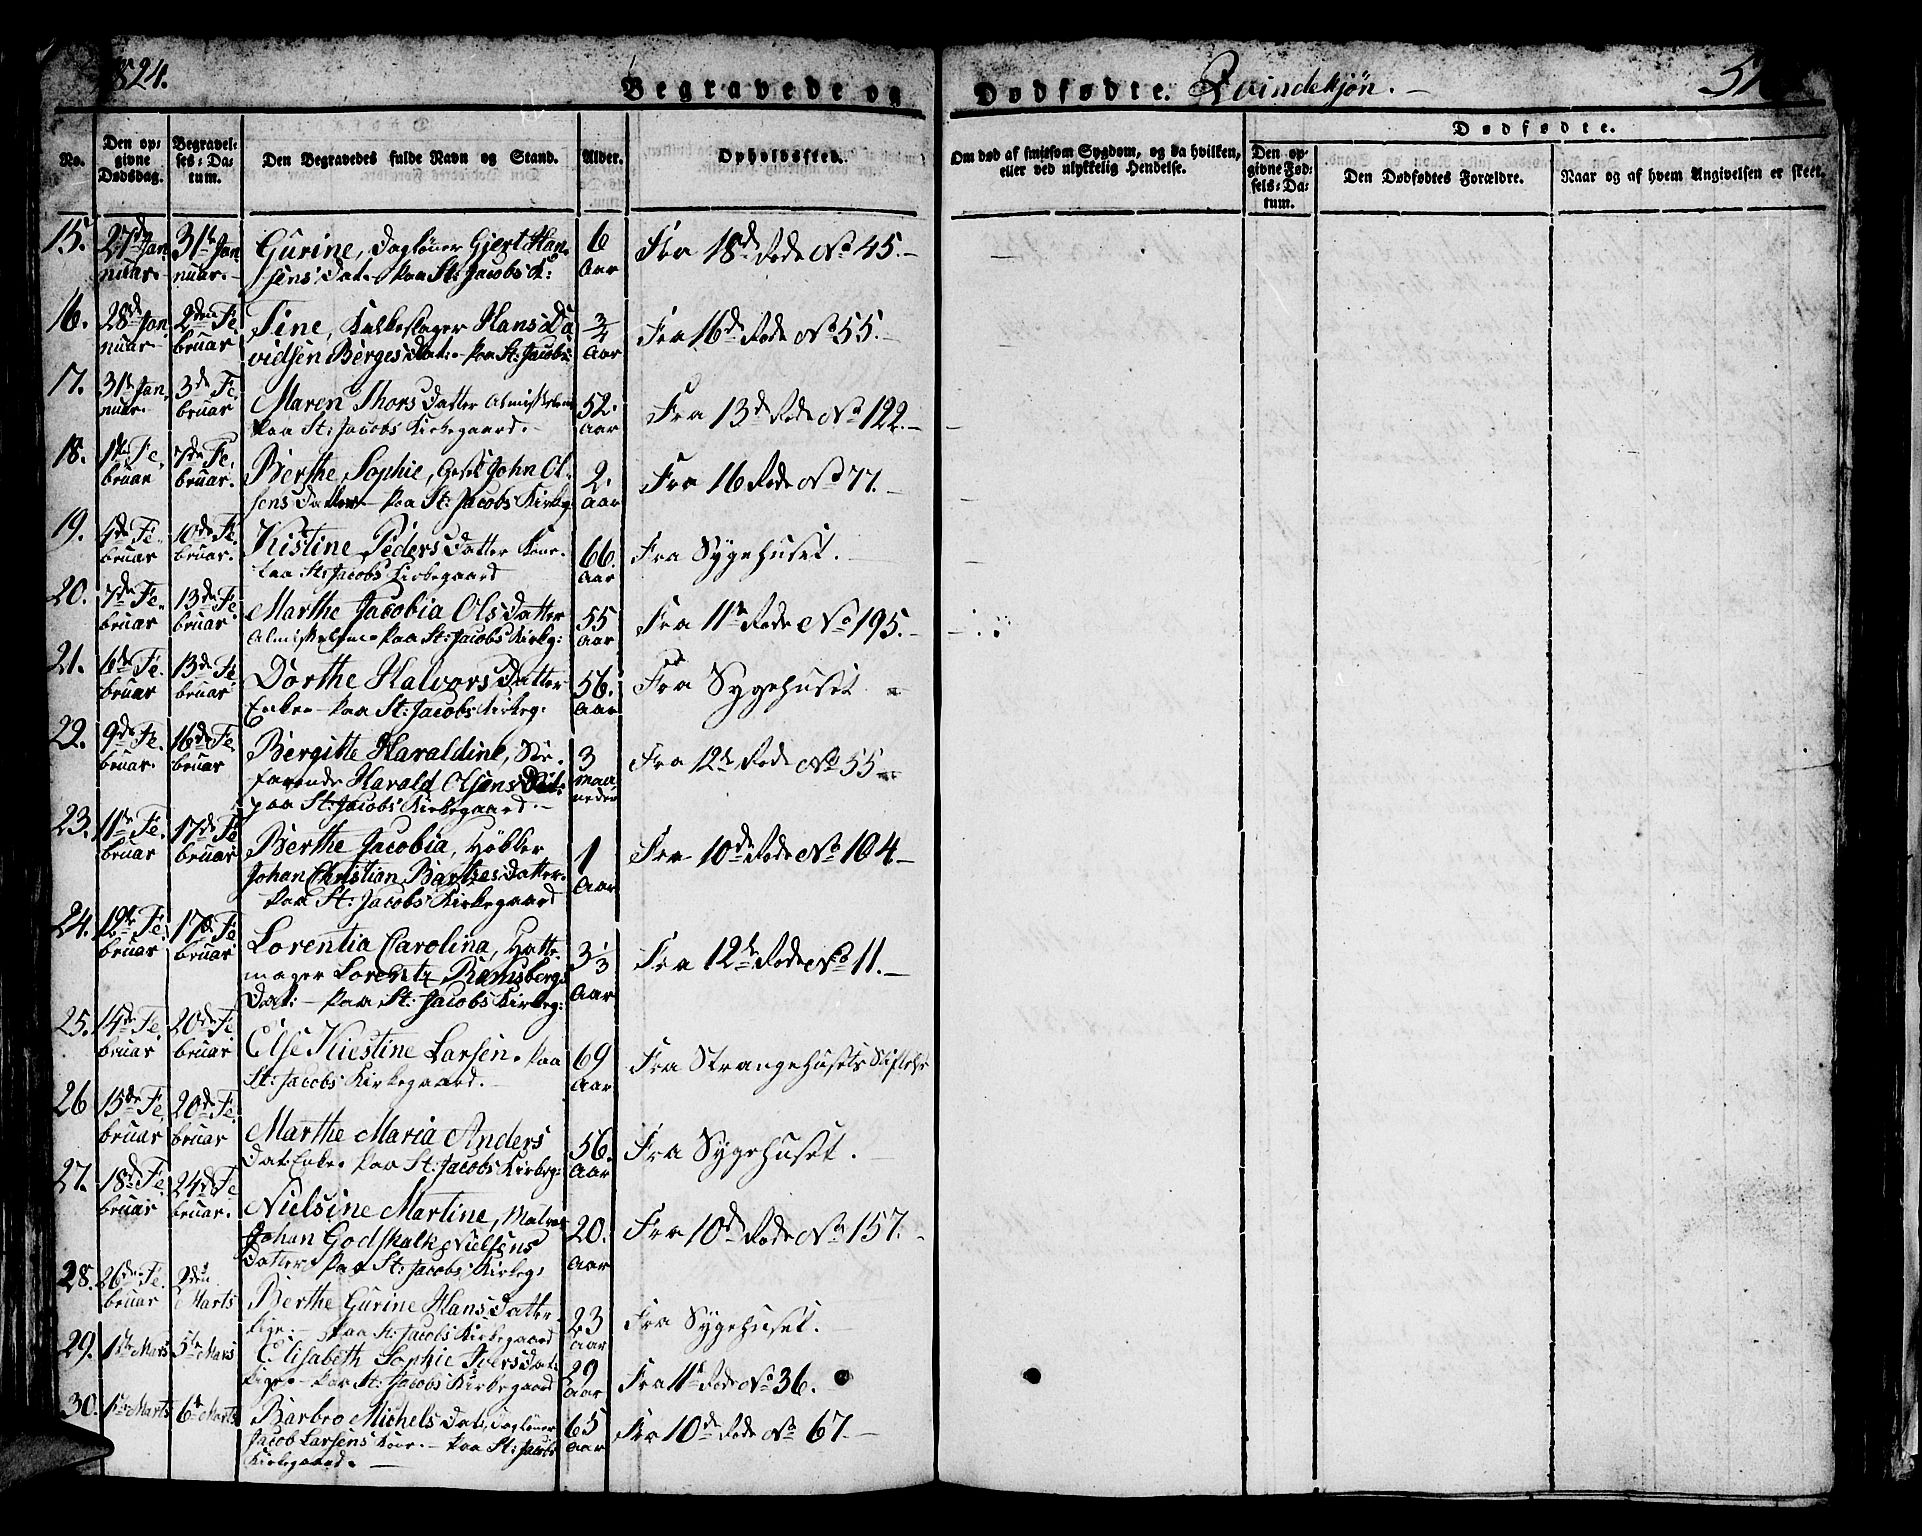 1824.
Begravede og Dødfødte. Qvindekjøn. —
No.
Den opgivne Dødsdag.
Begravelses-Datum.
Den Begravedes fulde Navn og Stand.
Alder.
Opholdssted.
Om død af smitsom Sygdom, og da hvilken, eller ved ulykkelig Hendelse.
Dødfødte.
Den opgivne Fødsels-Datum.
Den Dødfødtes Forældre.
Naar og af hvem Angivelsen er skeet.
15. 27de Januar. 31te Januar. Gurine, Dagløner Gjert Han-
sens Dat. – paa St: Jacobs K: 6 Aar Fra 18de Rode No 45. —
16. 28de Januar 2den Februar Tine, Kalkeslager Hans Da
vidsen Berges Dat. – paa St: Jacobs 3/4 Aar Fra 16de Rode No 55. —
17. 31te Januar. 3de Februar Maren Thors Datter Almisselem
paa St: Jacobs Kirkegaard. – 52. Aar Fra 13de Rode No 122. —
18. 1te Februar 7de Februar. Berthe Sophie, John Ol-
sens Datter – paa St: Jacobs Kirkeg 2. Aar Fra 16 Rode No 77. —
19. 4de Februar 10de Februar. Kistine Peders Datter Kone.
paa St: Jacobs Kirkegaard 66. Aar Fra Sygehuset.
20. 7de Februar 13de Februar Marthe Jacobia Ols Datter
Almisselem – paa St: Jacobs Kirkg: 55 Aar Fra 11te Rode No 195. —
21. 6te Februar 13de Februar Dorthe Halvors Datter
Enke – paa St: Jacobs Kirkeg: 56. Aar Fra Sygehuset —
22. 9de Februar. 16de Februar Bergitte Haraldine, Søe-
farende Harald Olsens Dat:
paa St: Jacobs Kirkegaard. – 3 Maaneder Fra 12te Rode No 55 —
23. 11te Februar 17de Februar Berthe Jacobia, Høkker
Johan Christian Bartzes Datter.
paa St: Jacobs Kirkegaard 1 Aar Fra 10de Rode No 104 —
24. 12te Februar 17de Februar Lorentia Carolina, Hatte
mager Lorentz Ramsbergs
Dat: – paa St: Jacobs Kirkeg: 3 1/3 Aar Fra 12te Rode No 11. —
25. 14de Februar 20de Februar Else Kiestine Larsen. paa
St: Jacobs Kirkegaard. – 69 Aar Fra Strangehusets
26 15de Februar 20de Februar Marthe Maria Anders
Dat: Enke – paa St: Jacobs Kirkeg: 56. Aar Fra Sygehuset. —
27. 18de Februar 24de Februar. Nielsine Martine,
Johan Godskalk Nielsens
Datter – paa St: Jacobs Kirkeg: 20. Aar Fra 10de Rode No 157. —
28. 26de Februar 2den Marts Berthe Gurine Hans Datter
Pige. – paa St: Jacobs Kirkegaard 23 Aar Fra Sygehuset. —
29. 1te Mars 5te Mars Elisabeth Sophie Ivers Dat:
Pige – paa St: Jacobs Kirkegaard 29 Aar Fra 11te Rode No 36.
30. 1te Marts 6te Marts Barbro Michels Dat: Dagløner
Jacob Larsens Kone. – paa St: Jacobs
Kirkegaard. — 65 Aar Fra 10de Rode No 67. —